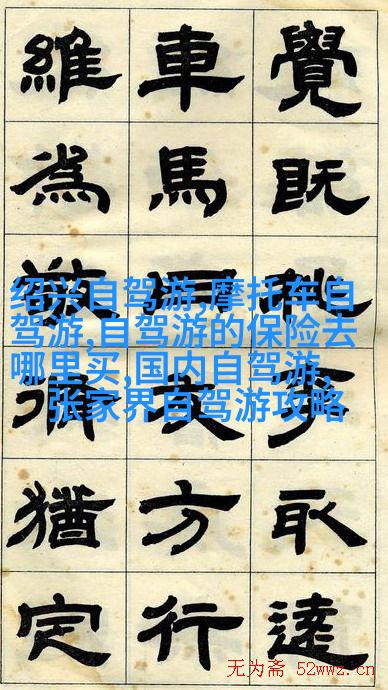 覺既李取遠
車馬方行
維為猶定
绍兴自驾游,摩托车自
驾游,自驾游的保险去
哪里买,国内自驾游,
张家界自驾游攻略
无为斋 52wwz.cn